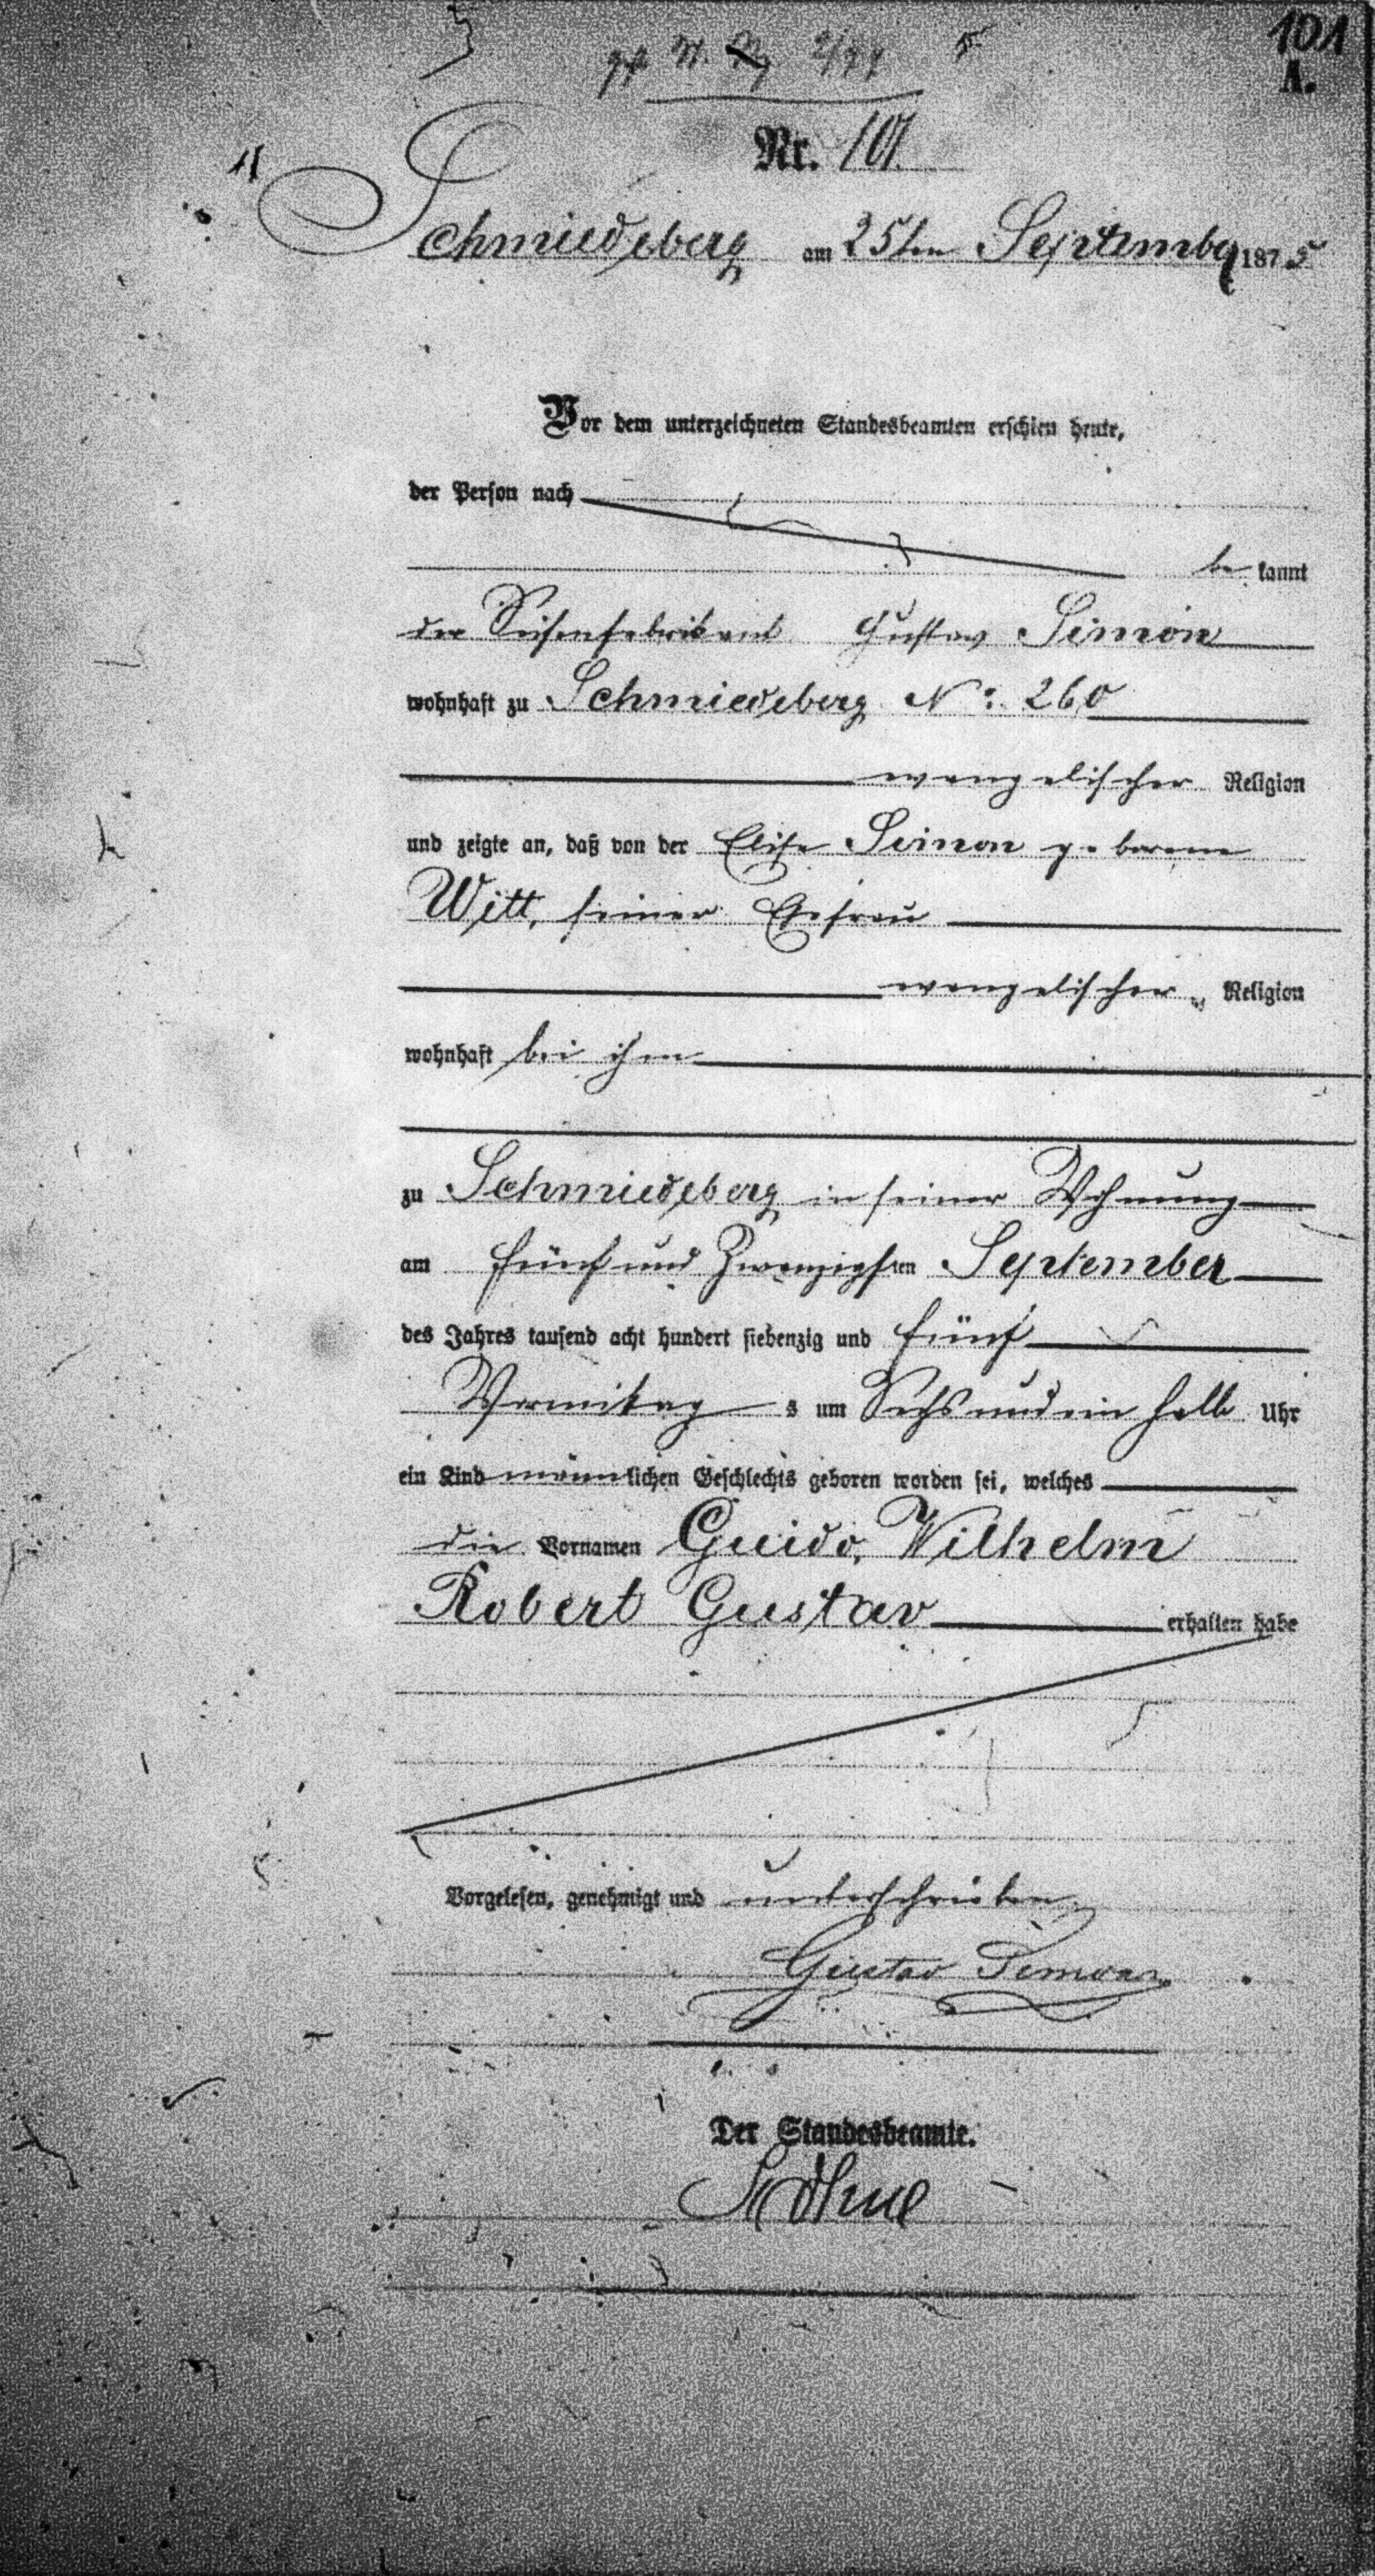 101
A.
Nr. 101.
Schmiedeberg am 25ten September 1875
Vor dem unterzeichneten Standesbeamten erschien heute,
der Person nach
be kannt
der Seifenfabrikant Gustav Simon
wohnhaft zu Schmiedeberg No: 260
evangelischer Religion
und zeigte an, daß von der Elise Simon geborene
Witt, seiner Ehefrau
evangelischer Religion
wohnhaft bei ihm
zu Schmiedeberg in seiner Wohnung
am fünf und zwanzigsten September
des Jahres tausend acht hundert siebenzig und fünf
Vormittags um Sechs und ein halb Uhr
ein Kind männlichen Geschlechts geboren worden sei, welches
die Vornamen Guido, Wilhelm
Robert Gustav erhalten habe
Vorgelesen, genehmigt und unterschrieben
Gustav Simon
Der Standesbeamte.